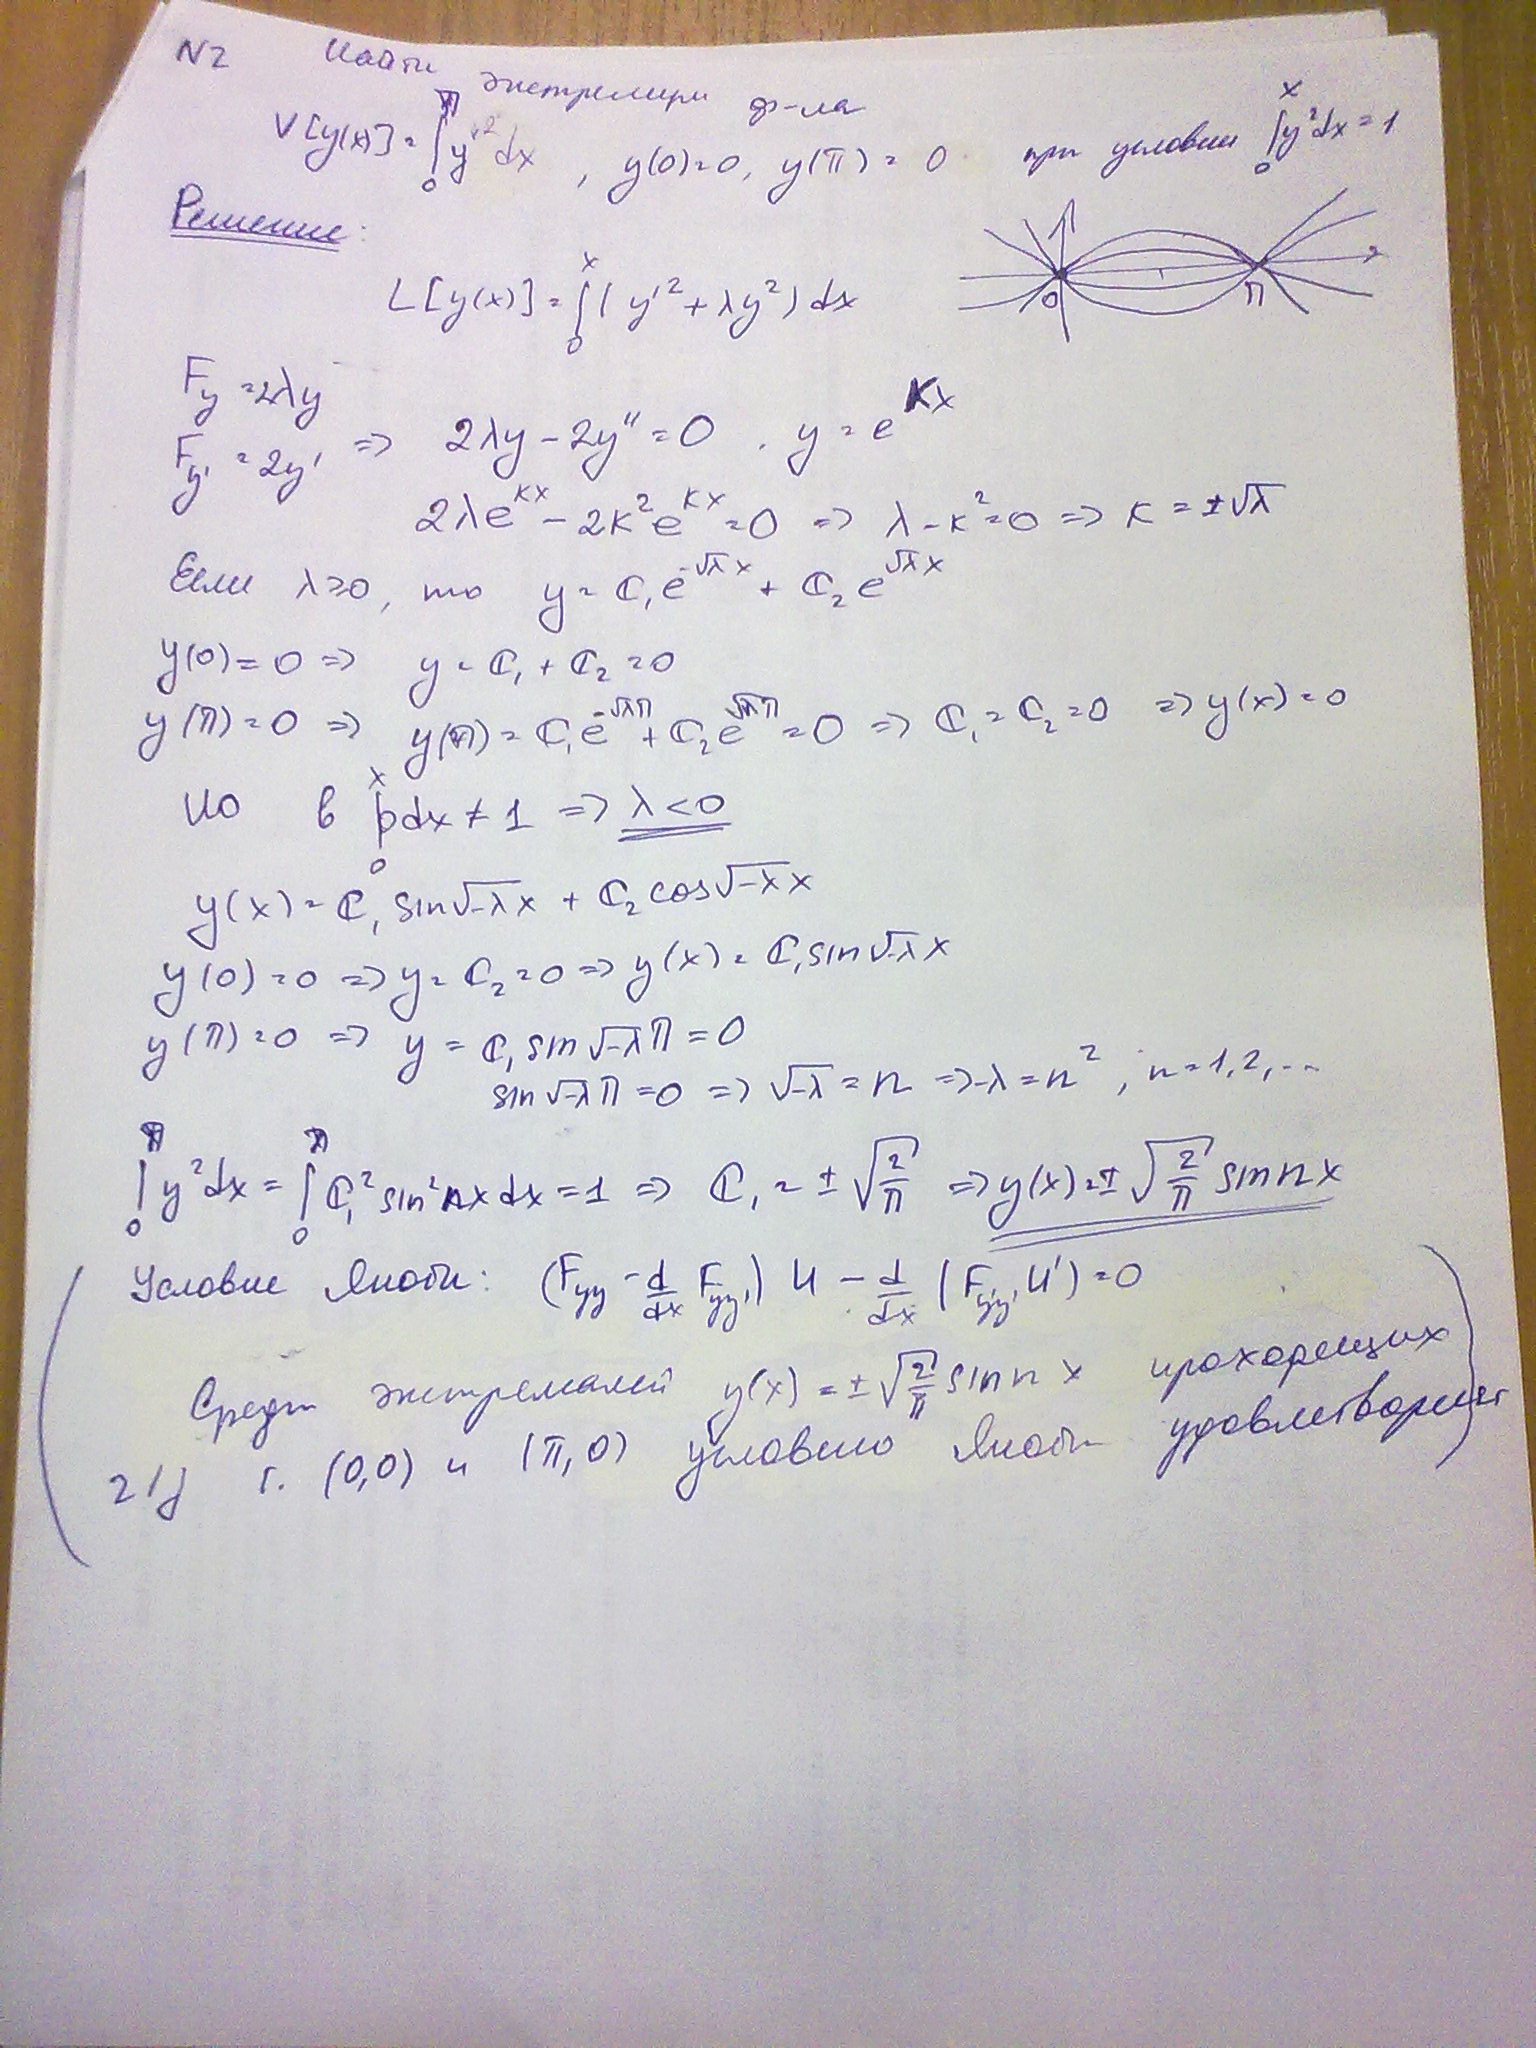 N2 Найти экстремум ф-ла
V[y(x)] = ∫₀^π y'² dx , y(0)=0, y(π) = 0 при условии ∫₀^x y² dx = 1
Решение:
L[y(x)] = ∫₀^x ( y'² + λy² ) dx
0 π
F_y = 2λy
F_y' = 2y' => 2λy - 2y'' = 0 . y = e^{kx}
2λe^{kx} - 2k²e^{kx} = 0 => λ - k² = 0 => k = ±√λ
Если λ≥0, то y = C₁e^{-√λ x} + C₂e^{√λ x}
y(0) = 0 => y = C₁ + C₂ = 0
y(π) = 0 => y(π) = C₁e^{-√λπ} + C₂e^{√λπ} = 0 => C₁ = C₂ = 0 => y(x) = 0
Но в ∫₀^x 0dx ≠ 1 => λ < 0
y(x) = C₁ sin√-λx + C₂ cos√-λx
y(0) = 0 => y = C₂ = 0 => y(x) = C₁sin√-λ x
y(π) = 0 => y = C₁ sin√-λπ = 0
sin√-λπ = 0 => √-λ = n => -λ = n² , n = 1,2,...
∫₀^π y²dx = ∫₀^π C₁² sin² nx dx = 1 => C₁ = ±√(2/π) => y(x) = ±√(2/π) sin nx
Условие Якоби: (F_yy - d/dx F_yy') U - d/dx (F_y'y' U') = 0
Среди экстремалей y(x) = ±√(2/π) sin n x проходящих
ч/з т. (0,0) и (π,0) условию Якоби удовлетворяет